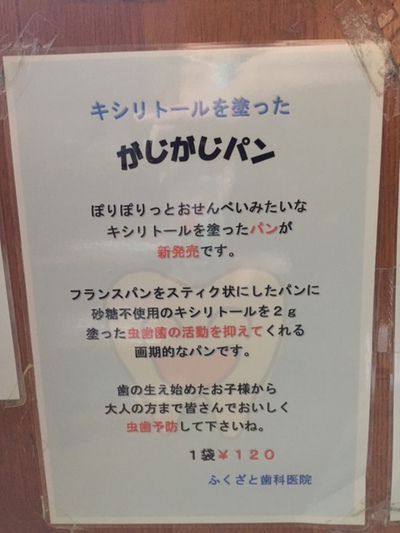 キシリトールを塗った
がじがじパン
ぽりぽりっとおせんべいみたいな
キシリトールを塗ったパンが
新発売です。
フランスパンをスティク状にしたパンに
砂糖不使用のキシリトールを２ｇ
塗った虫歯菌の活動を抑えてくれる
画期的なパンです。
歯の生え始めたお子様から
大人の方まで皆さんでおいしく
虫歯予防して下さいね。
１袋￥１２０
ふくざと歯科医院